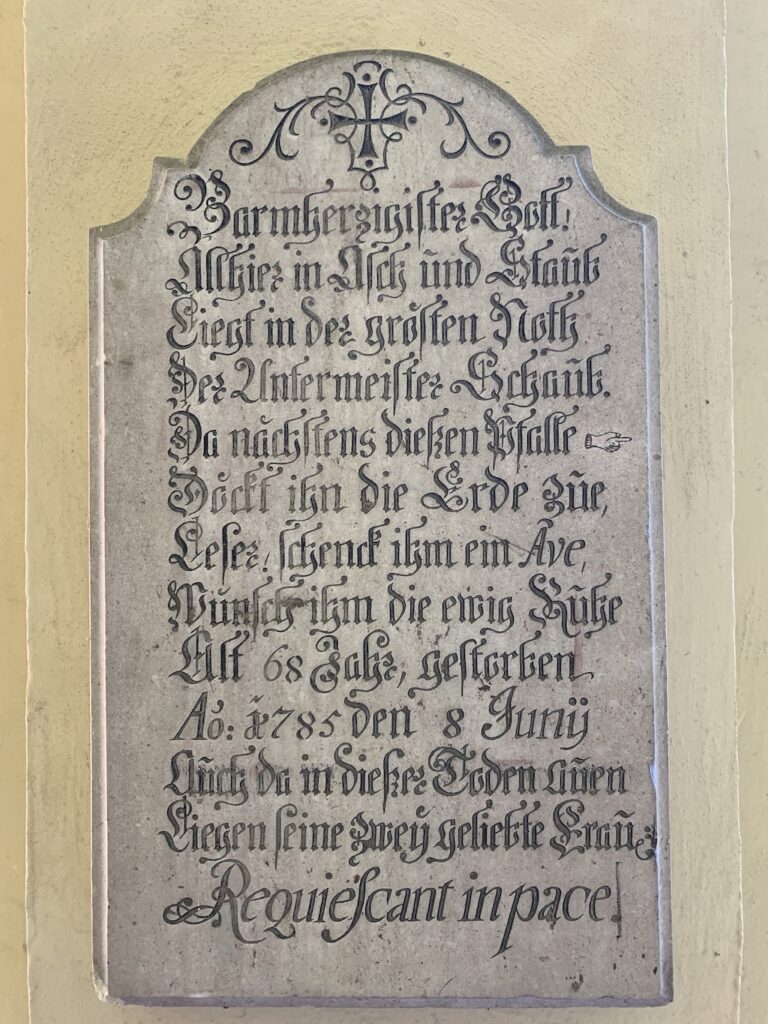 Barmherzigister Gott!
Alhier in Asch und Staub
Liegt in der grösten Noth
Der Untermeister Schaub.
Da nächstens dießen Pfalle ☞
Döckt ihn die Erde zue,
Leser, schenck ihm ein Ave,
Wünsch ihm die ewig Ruhe
Alt 68 Jahr, gestorben
Aö: 1785 den 8 Junÿ
Auch da in dießer Toden auen
Liegen seine zweÿ geliebte Frauē
Requiescant in pace!